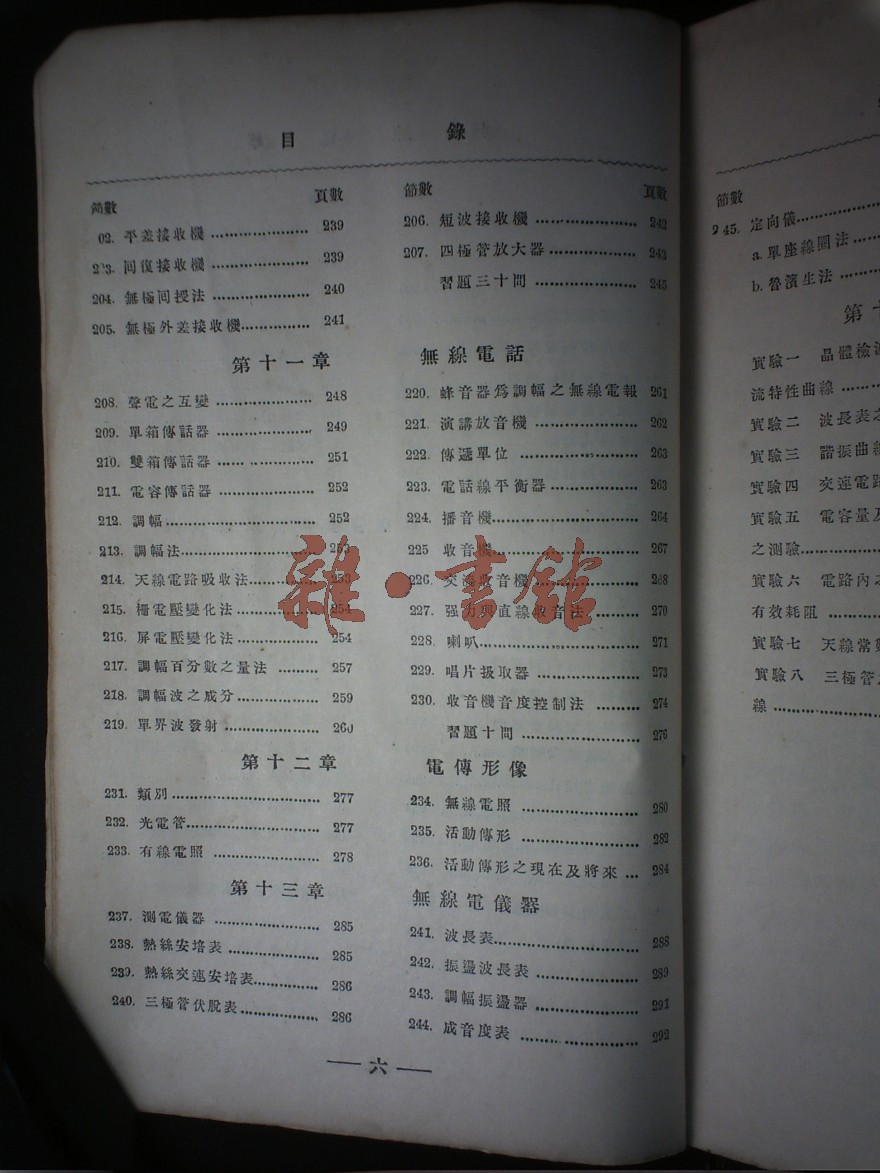 目 錄
節數 頁數
02. 平差接收機 .................. 239
203. 回復接收機 .................. 239
204. 無極回授法 .................. 240
205. 無極外差接收機 .................. 241
節數 頁數
206. 短波接收機 .................. 242
207. 四極管放大器 .................. 243
習題三十問 .................. 245
第十一章 無線電話
208. 聲電之互變 .................. 248
209. 單箱傳話器 .................. 249
210. 雙箱傳話器 .................. 251
211. 電容傳話器 .................. 252
212. 調幅 .................. 252
213. 調幅法 .................. 253
214. 天線電路吸收法 .................. 253
215. 柵電壓變化法 .................. 254
216. 屏電壓變化法 .................. 254
217. 調幅百分數之量法 .................. 257
218. 調幅波之成分 .................. 259
219. 單界波發射 .................. 260
220. 蜂音器爲調幅之無線電報 261
221. 演講放音機 .................. 262
222. 傳遞單位 .................. 263
223. 電話線平衡器 .................. 263
224. 播音機 .................. 264
225 收音機 .................. 267
226. 交流收音機 .................. 268
227. 强力與直線收音法 .................. 270
228. 喇叭 .................. 271
229. 唱片扱取器 .................. 273
230. 收音機音度控制法 .................. 274
習題十問 .................. 276
第十二章 電傳形像
231. 類別 .................. 277
232. 光電管 .................. 277
233. 有線電照 .................. 278
234. 無線電照 .................. 280
235. 活動傳形 .................. 282
236. 活動傳形之現在及將來 ... 284
第十三章 無線電儀器
237. 測電儀器 .................. 285
238. 熱絲安培表 .................. 285
239. 熱絲交連安培表 .................. 286
240. 三極管伏脫表 .................. 286
241. 波長表 .................. 288
242. 振盪波長表 .................. 289
243. 調幅振盪器 .................. 291
244. 成音度表 .................. 292
— 六 —
雜·書館
節數
245. 定向儀 ..................
a. 單座線圈法 ..................
b. 魯濱生法 ..................
第十
實驗一 晶體檢波
流特性曲線 ..................
實驗二 波長表之
實驗三 諧振曲線
實驗四 交連電路
實驗五 電容量及
之測驗 ..................
實驗六 電路內之
有效耗阻 ..................
實驗七 天線常數
實驗八 三極管
線 ..................